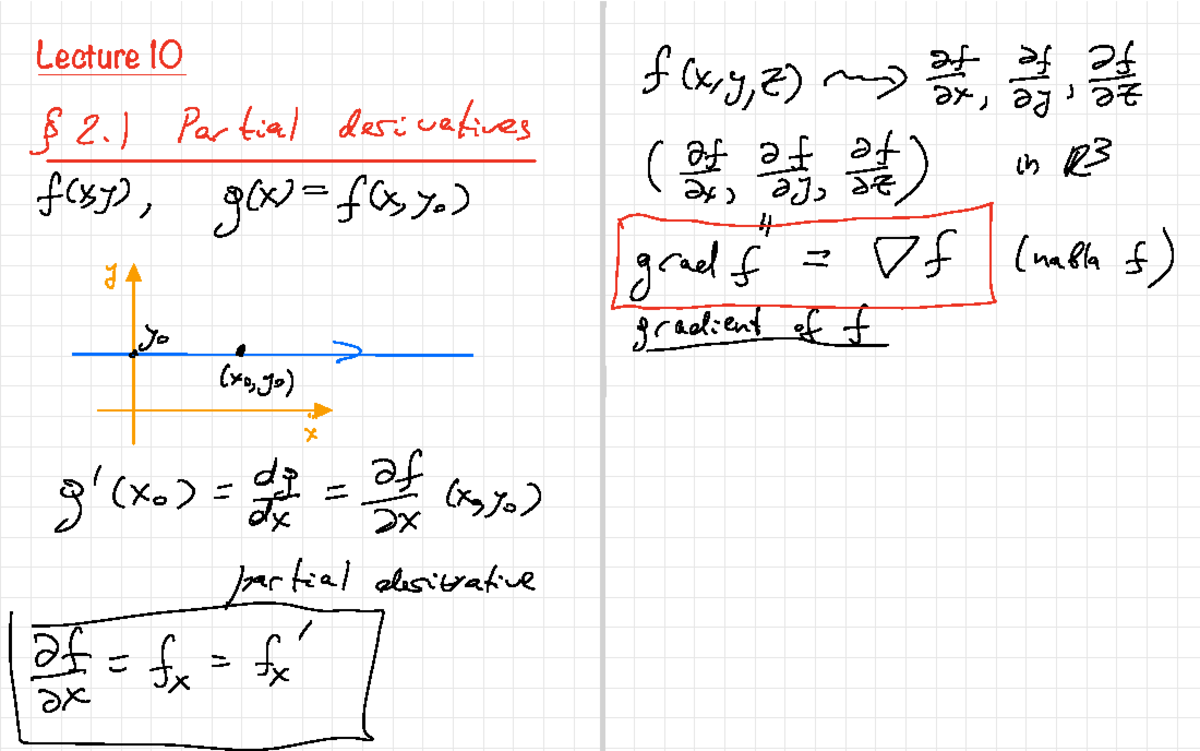 Lecture 10
§ 2.1 Partial derivatives
f(x,y), g(x) = f(x, y₀)
y
y₀
(x₀, y₀)
x
g'(x₀) = dg/dx = ∂f/∂x (x₀, y₀)
partial derivative
∂f/∂x = fₓ = fₓ'
f(x,y,z) ⇝ ∂f/∂x, ∂f/∂y, ∂f/∂z
(∂f/∂x, ∂f/∂y, ∂f/∂z) in ℝ³
"
grad f = ∇f (nabla f)
gradient of f